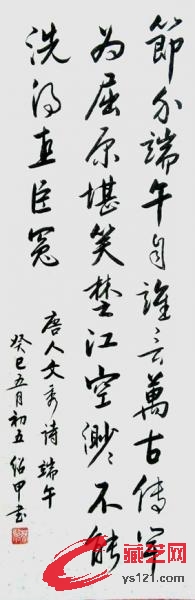 節分端午自誰言萬古傳聞
为屈原堪笑楚江空渺々不能
洗得直臣冤
唐人文秀诗端午
癸巳五月初五 绍甲书
藏艺网
ys121.com